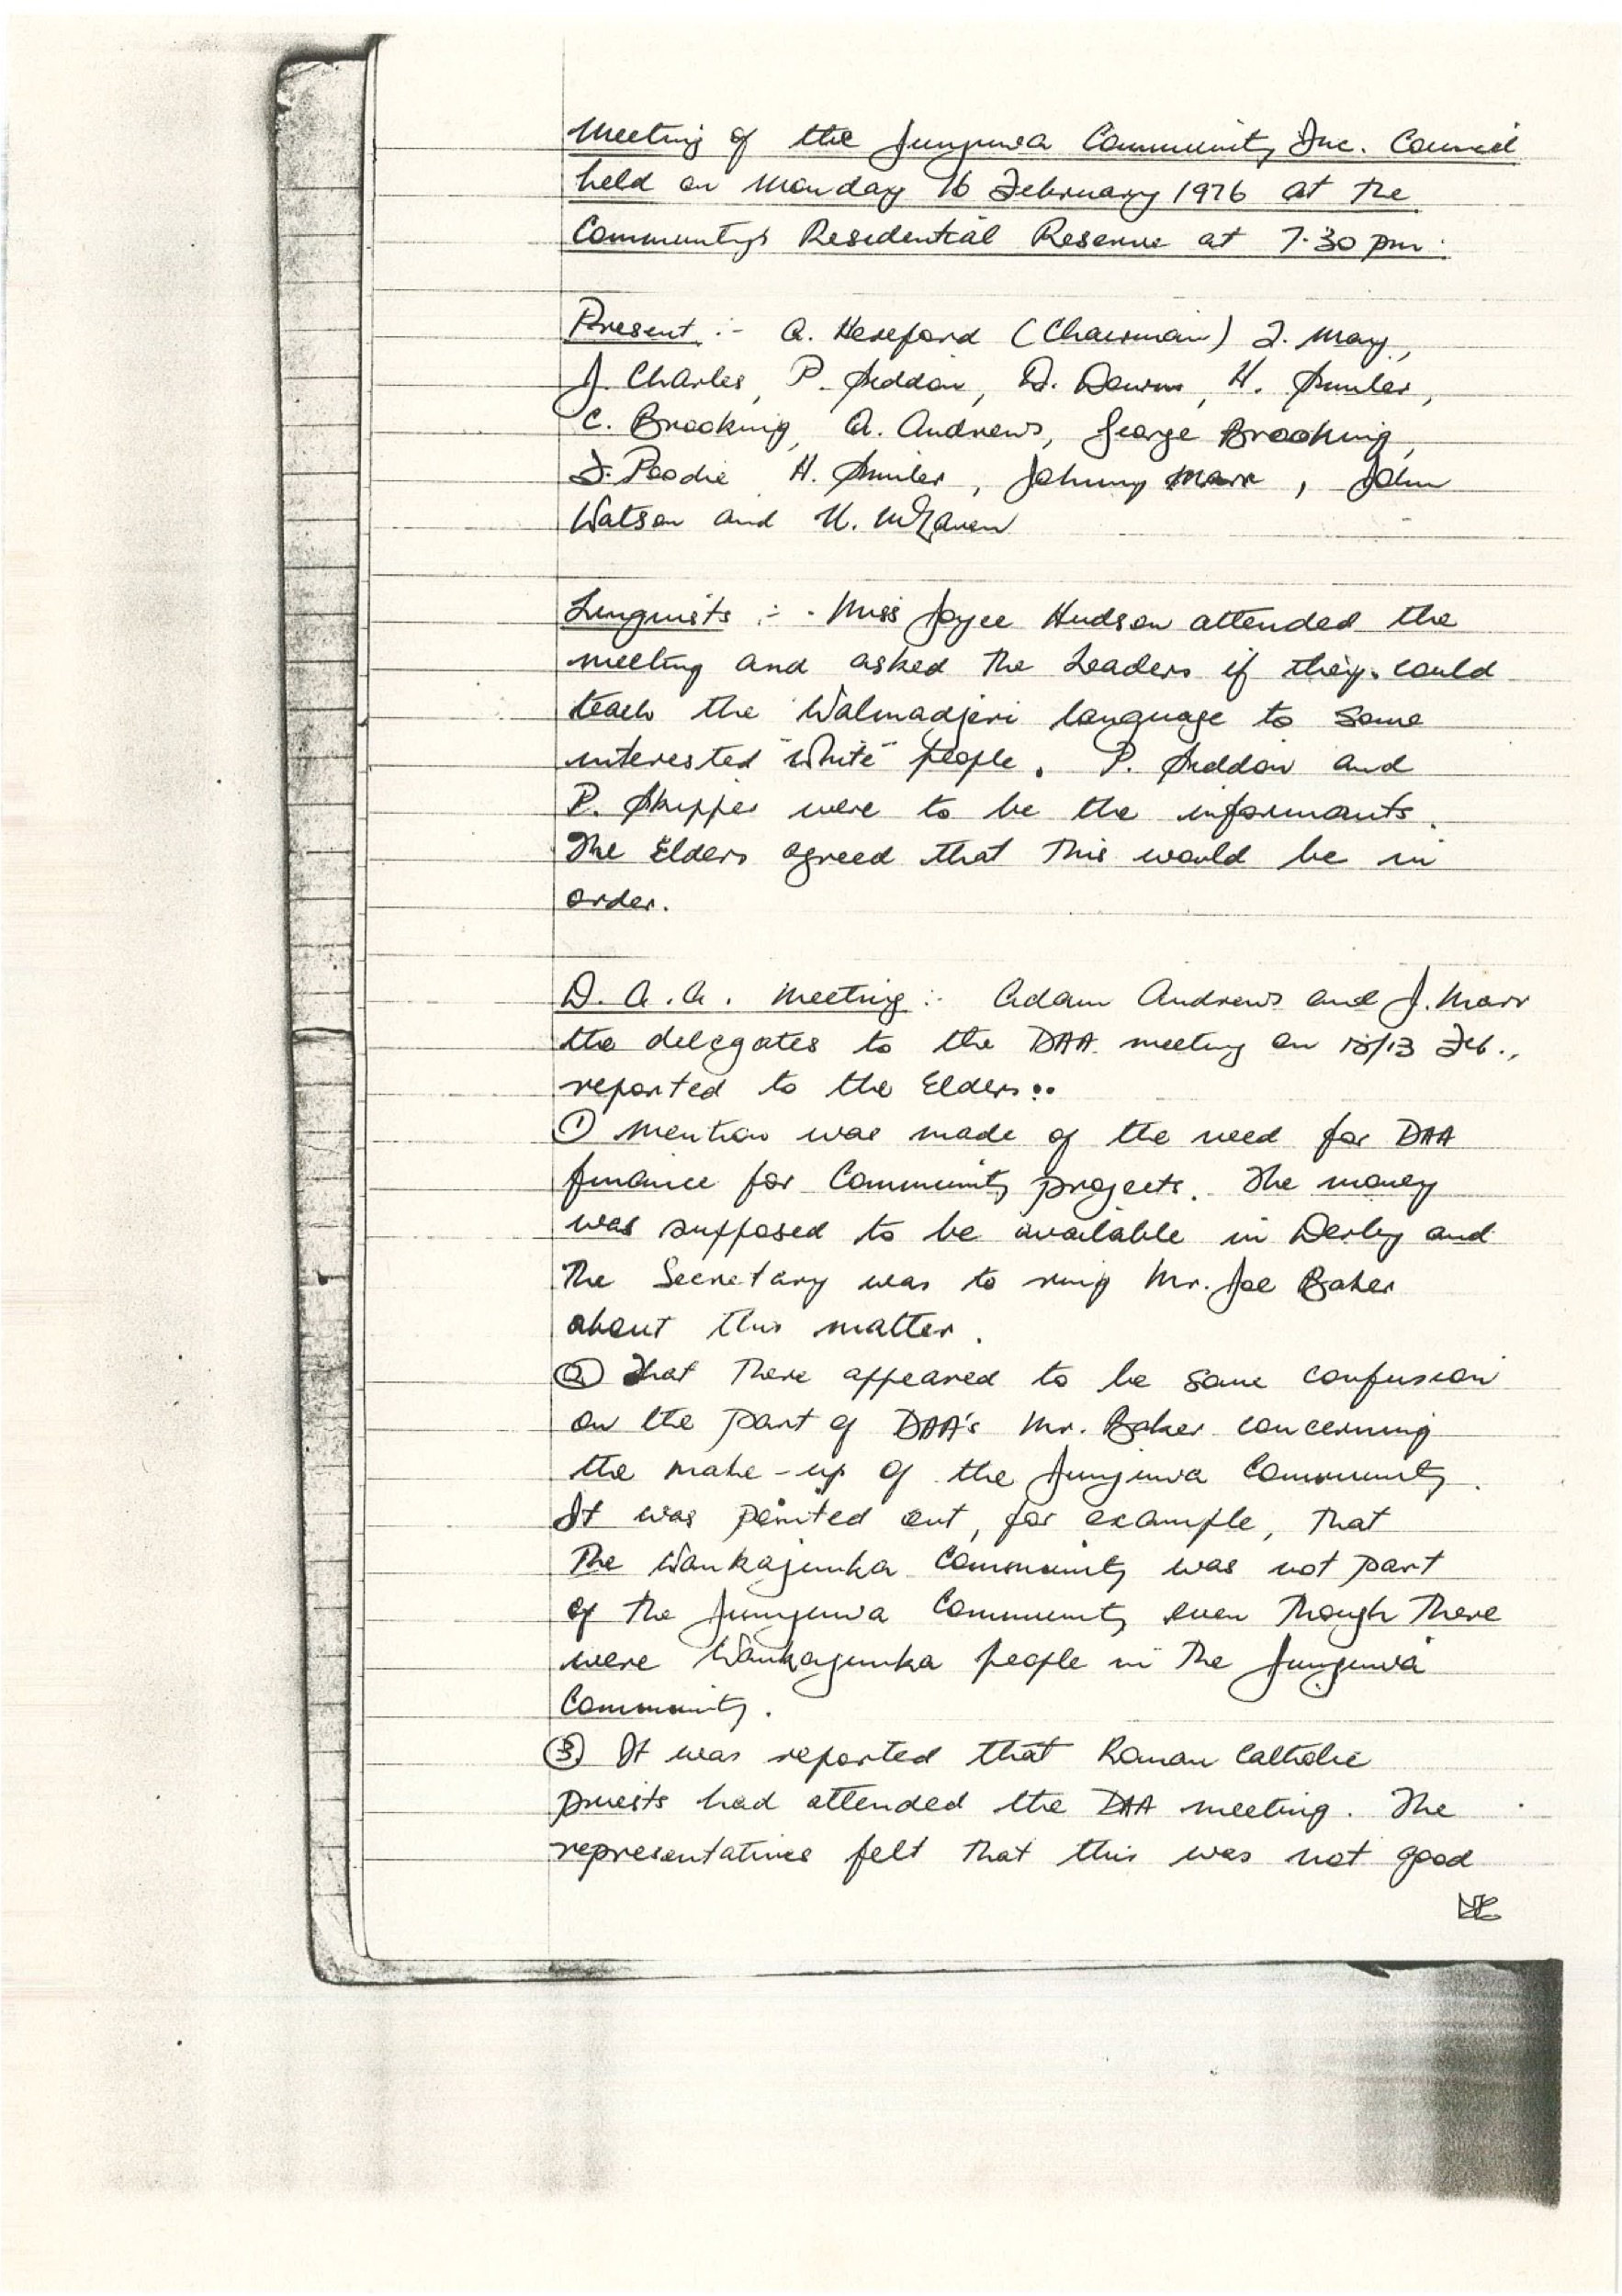 Meeting of the Junjuwa Community Inc. Council
held on Monday 16 February 1976 at the
Community's Residential Reserve at 7.30 pm.
Present :- A. Hereford (Chairman) J. May,
J. Charles, P. Seddon, D. Downs, H. Smiler,
C. Brooking, A. Andrews, George Brooking,
J. Poodie H. Smiler, Johnny Marr, John
Watson and
Linguists :- Miss Joyce Hudson attended the
meeting and asked the Leaders if they could
teach the Walmadjeri language to some
interested "White" people. P. Seddon and
P. Skipper were to be the informants.
The Elders agreed that this would be in
order.
D.A.A. Meeting :- Adam Andrews and J. Marr
the delegates to the DAA meeting on 12/13 Feb.,
reported to the Elders:.
① Mention was made of the need for DAA
finance for Community projects. The money
was supposed to be available in Derby and
the Secretary was to ring Mr. Joe Baker
about this matter.
② That there appeared to be some confusion
on the part of DAA's Mr. Baker concerning
the make-up of the Junjuwa Community.
It was pointed out, for example, that
the Wankajunka Community was not part
of the Junjuwa Community even though there
were Wankajunka people in the Junjuwa
Community.
③ It was reported that Roman Catholic
priests had attended the DAA meeting. The
representatives felt that this was not good